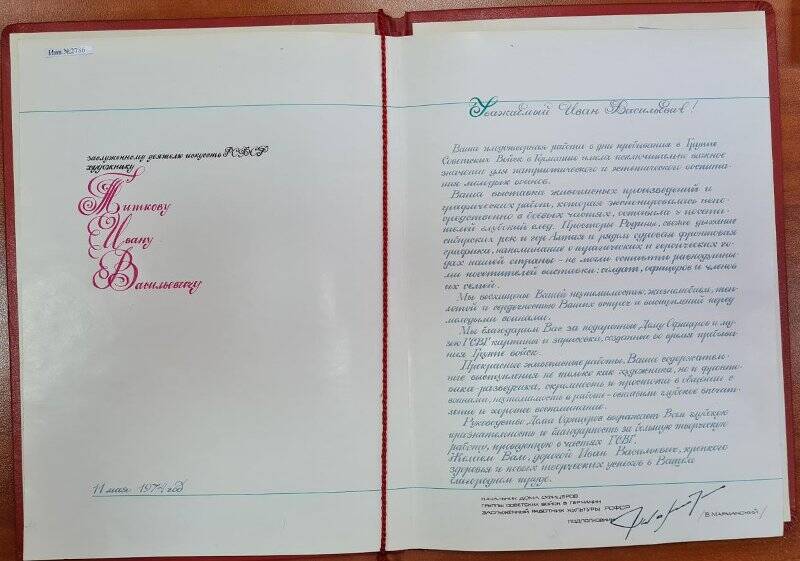 Инв №2786
заслуженному деятелю искусств РСФСР
художнику
Титкову
Ивану
Васильевичу
11 мая 1974 год
Уважаемый Иван Васильевич!
Ваша плодотворная работа в дни пребывания в Группе
Советских Войск в Германии имела исключительно важное
значение для патриотического и эстетического воспита-
ния молодых воинов.
Ваша выставка живописных произведений и
графических работ, которая экспонировалась непо-
средственно в боевых частях, оставила у посети-
телей глубокий след. Просторы Родины, свежее дыхание
сибирских рек и гор Алтая и рядом суровая фронтовая
графика, напоминание о трагических и героических го-
дах нашей страны - не могли оставить равнодушны-
ми посетителей выставки: солдат, офицеров и членов
их семей.
Мы восхищены Вашей неутомимостью, жизнелюбием, теп-
лотой и сердечностью Ваших встреч и выступлений перед
молодыми воинами.
Мы благодарим Вас за подаренные Дому Офицеров и му-
зею ГСВГ картины и зарисовки, созданные во время пребыва-
ния Группе войск.
Прекрасные живописные работы, Ваши содержатель-
ные выступления не только как художника, но и фронто-
вика-разведчика, скромность и простота в общении с
воинами, неутомимость в работе - оставили глубокое впечат-
ление и хорошее воспоминание.
Руководство Дома Офицеров выражает Вам глубокую
признательность и благодарность за большую творческую
работу, проведенную в частях ГСВГ.
Желаем Вам, дорогой Иван Васильевич, крепкого
здоровья и новых творческих успехов в Вашем
благородном труде.
НАЧАЛЬНИК ДОМА ОФИЦЕРОВ
ГРУППЫ СОВЕТСКИХ ВОЙСК В ГЕРМАНИИ
ЗАСЛУЖЕННЫЙ РАБОТНИК КУЛЬТУРЫ РСФСР
ПОДПОЛКОВНИК